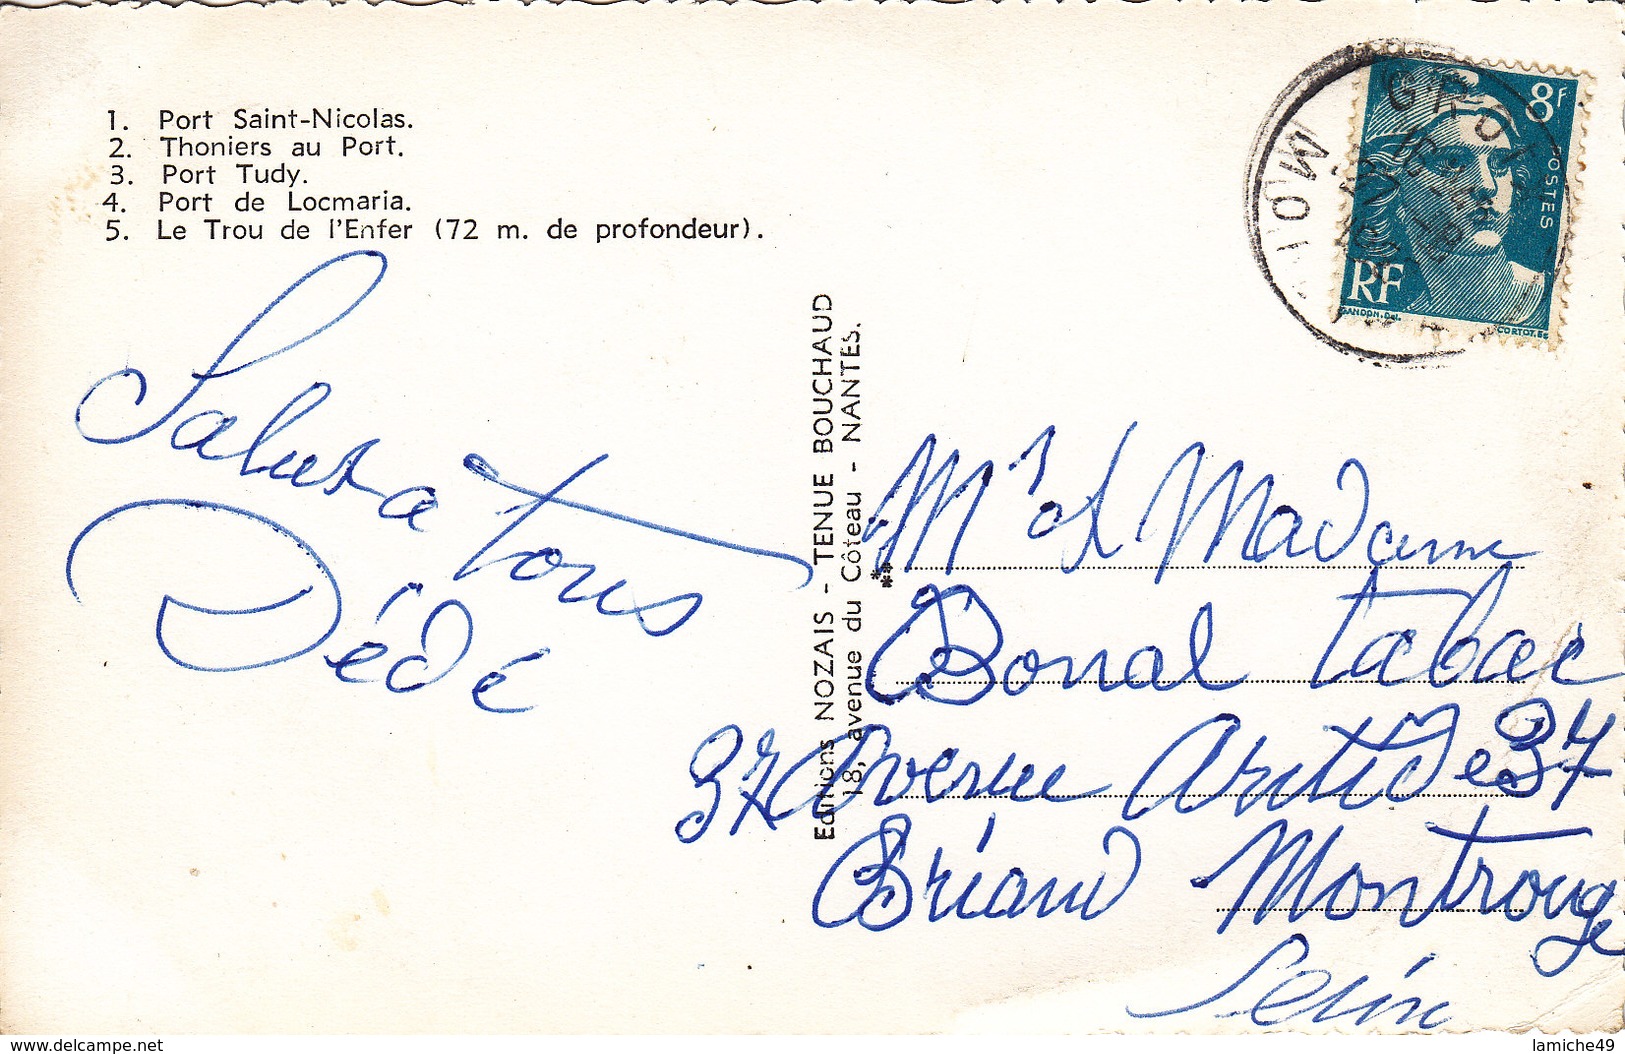 1. Port Saint-Nicolas.
2. Thoniers au Port.
3. Port Tudy.
4. Port de Locmaria.
5. Le Trou de l'Enfer (72 m. de profondeur).
Salut a tous
Dédé
Editions NOZAIS - TENUE BOUCHAUD
18, avenue du Côteau - NANTES.
8f
POSTES
RF
GANDON. Del.
CORTOT. Sc
GROIX
Mr et Madame
Bonal tabac
37 Avenue Aristide 37
Briand Montrouge
Seine
www.delcampe.net
lamiche49